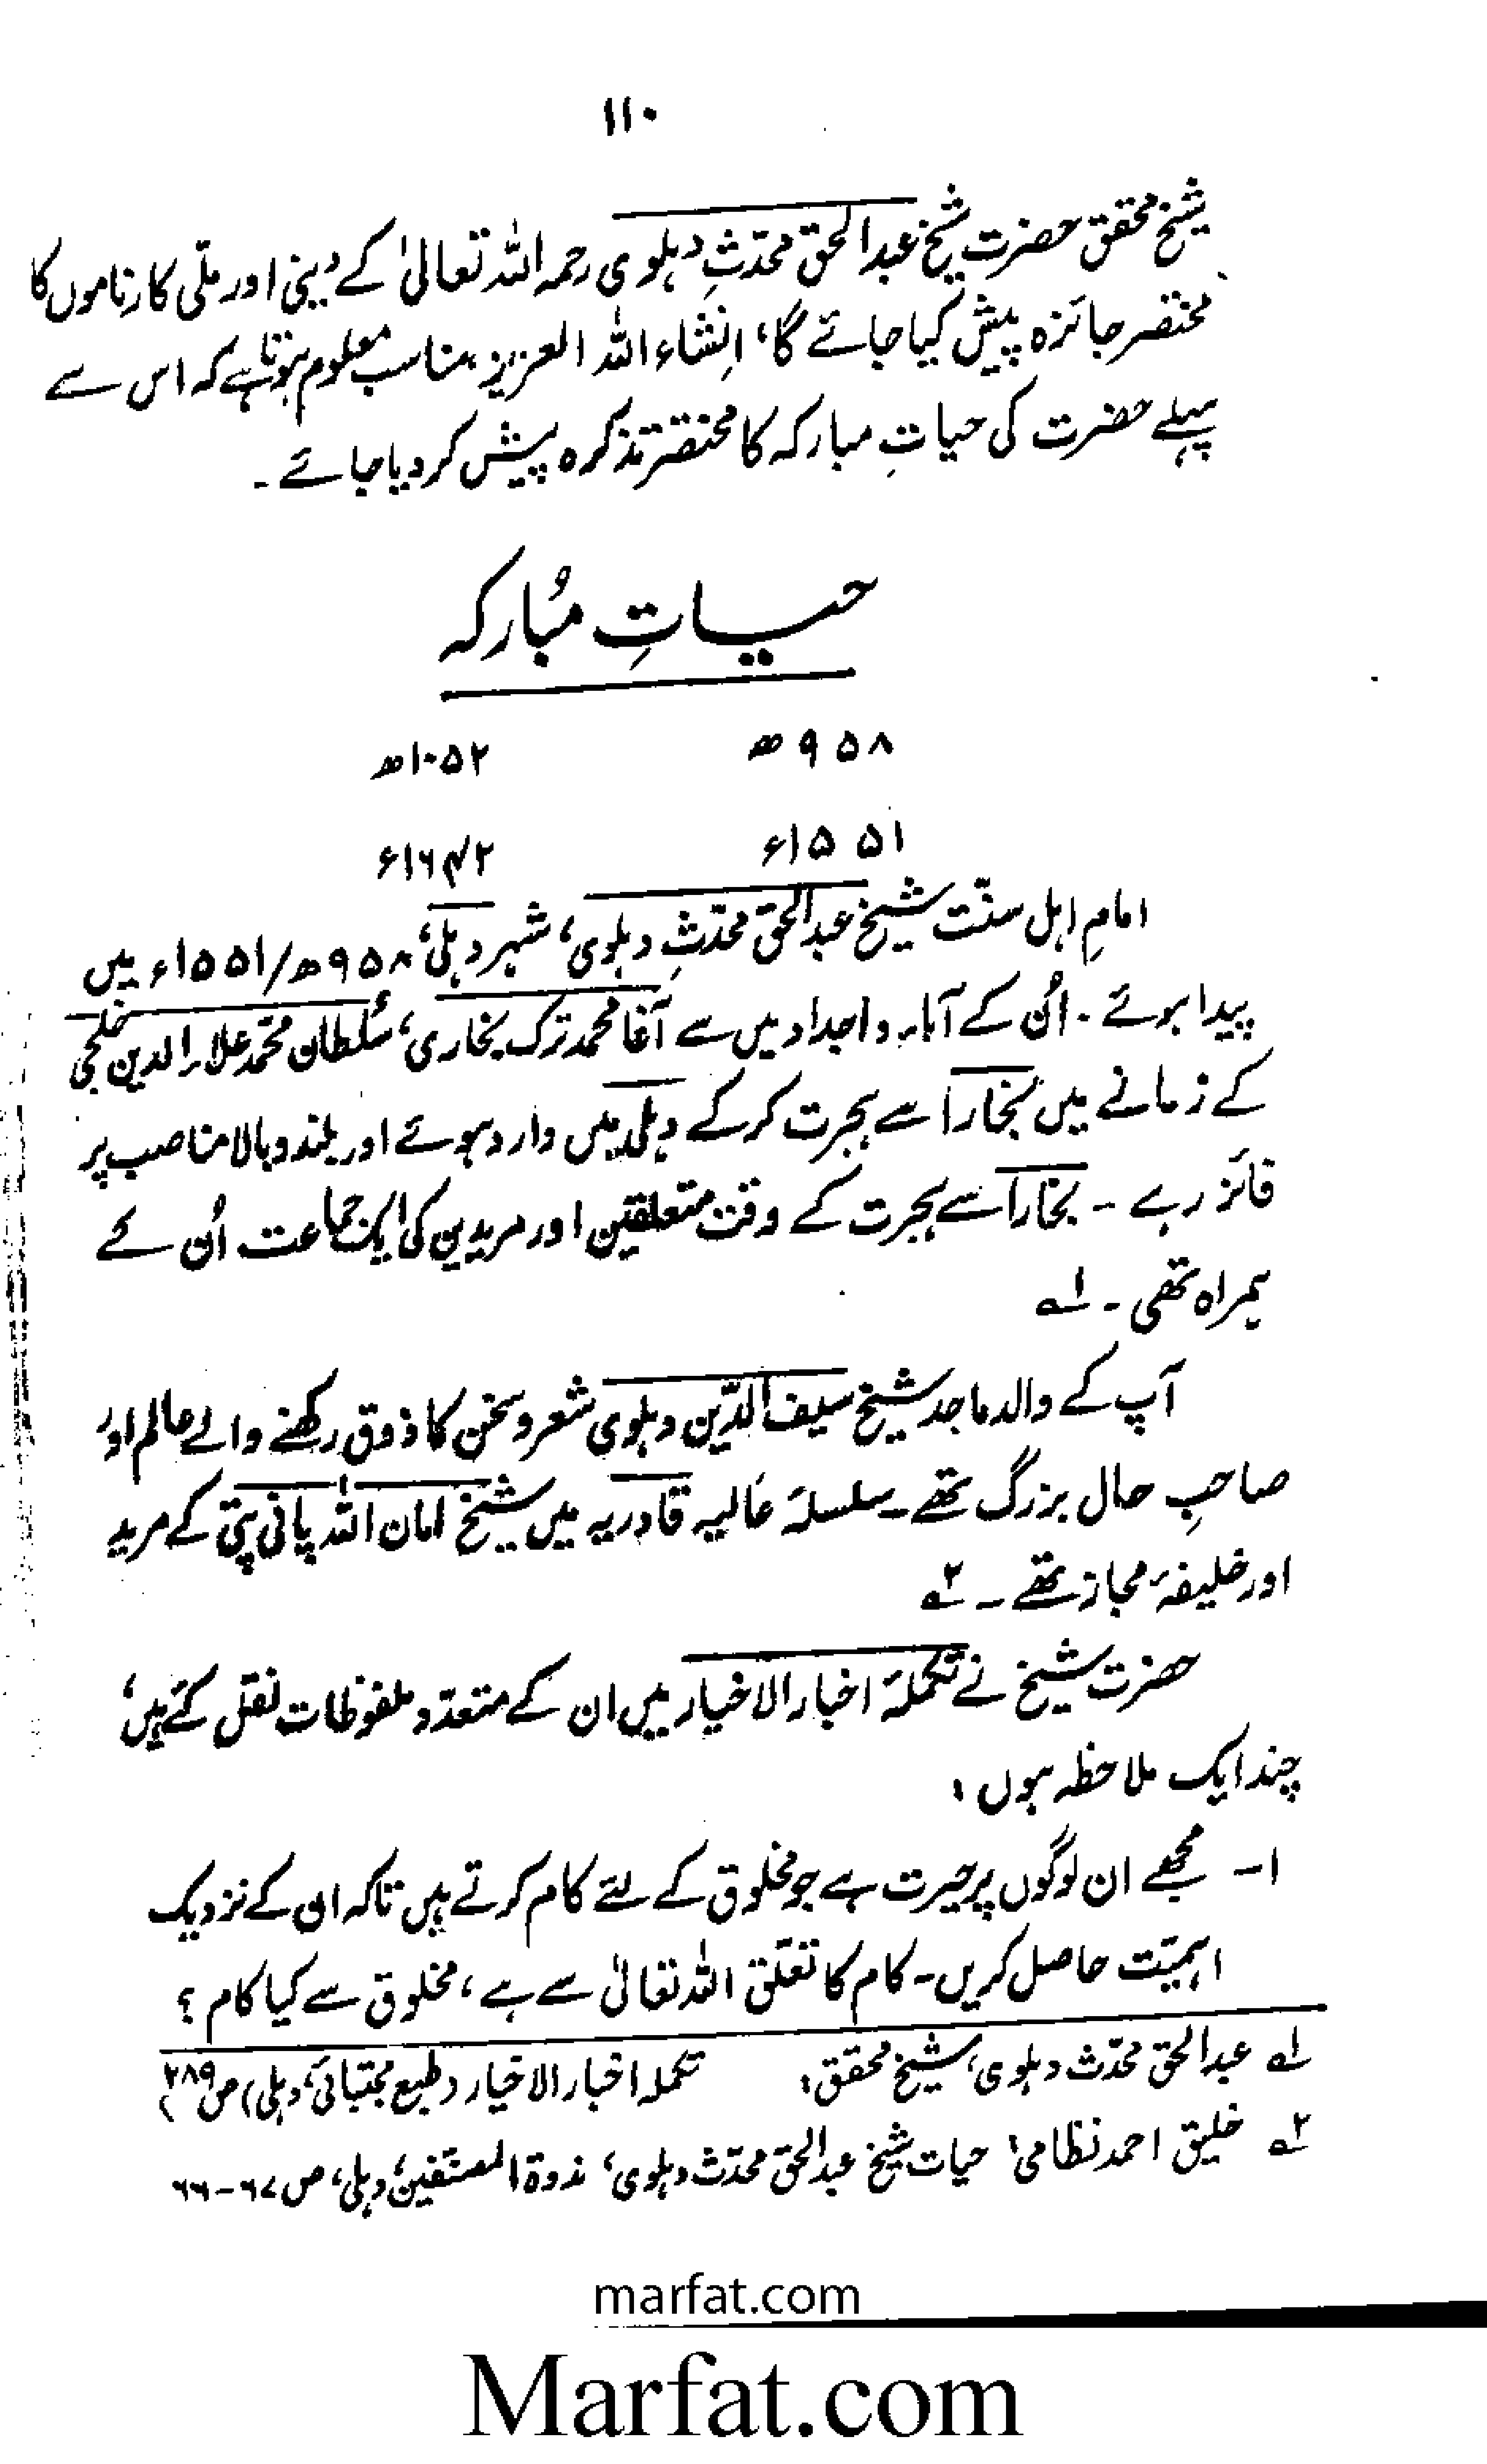 ۱۱۰
شیخ محقق حضرت شیخ عبدالحق محدّثِ دہلوی رحمہ اللہ تعالیٰ کے دینی اور ملّی کارناموں کا
مختصر جائزہ پیش کیا جائے گا، اِنشاء اللہ العزیز، مناسب معلوم ہوتا ہے کہ اس سے
پہلے حضرت کی حیاتِ مبارکہ کا مختصر تذکرہ پیش کر دیا جائے۔
حیاتِ مُبارکہ
۹۵۸ھ ۱۰۵۲ھ
۱۵۵۱ء ۱۶۴۲ء
امامِ اہل سنّت شیخ عبدالحق محدّثِ دہلوی، شہر دہلی، ۹۵۸ھ/۱۵۵۱ء میں
پیدا ہوئے۔ اُن کے آباء و اجداد میں سے آغا محمد ترک بخاری، سُلطان محمّد علاء الدین خلجی
کے زمانے میں بُخارا سے ہجرت کر کے دہلی میں وارد ہوئے اور بلند و بالا مناصب پر
فائز رہے۔ بخارا سے ہجرت کے وقت متعلقین اور مریدین کی ایک جماعت اُن کے
ہمراہ تھی۔ لے
آپ کے والد ماجد شیخ سیف الدّین دہلوی شعر و سخن کا ذوق رکھنے والے عالم اور
صاحبِ حال بزرگ تھے۔ سلسلۂ عالیہ قادریہ میں شیخ امان اللہ پانی پتی کے مرید
اور خلیفۂ مجاز تھے۔ ۲ے
حضرت شیخ نے تکملۂ اخبار الاخیار میں ان کے متعدّد ملفوظات نقل کئے ہیں،
چند ایک ملاحظہ ہوں:
۱۔ مجھے ان لوگوں پر حیرت ہے جو مخلوق کے لئے کام کرتے ہیں تاکہ ان کے نزدیک
اہمیّت حاصل کریں۔ کام کا تعلّق اللہ تعالیٰ سے ہے، مخلوق سے کیا کام؟
لے عبدالحق محدّث دہلوی، شیخ محقق: تکملہ اخبار الاخیار (طبع مجتبائی، دہلی) ص ۲۸۹
۲ے خلیق احمد نظامی: حیات شیخ عبدالحق محدّث دہلوی، ندوۃ المصنّفین، دہلی، ص ۶۷-۶۶
marfat.com
Marfat.com